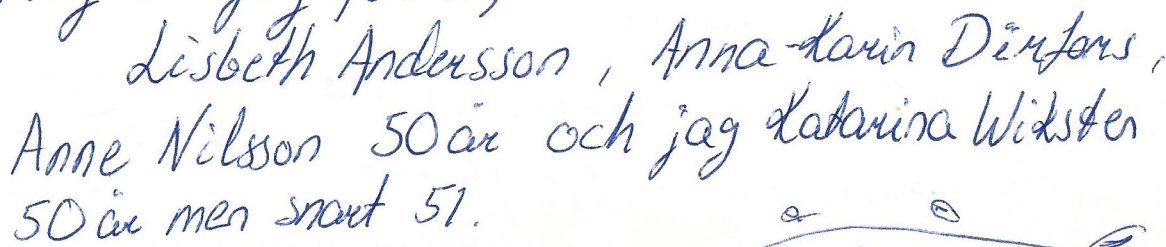 Lisbeth Andersson, Anna-Karin Dirfors,
Anne Nilsson 50 år och jag Katarina Wiksten
50 år men snart 51.